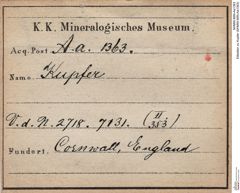 K. K. Mineralogisches Museum.
Acq. Post A.a. 1363.
Name Kupfer
V. d. N. 2718. 7131. (II/353)
Fundort. Cornwall, England